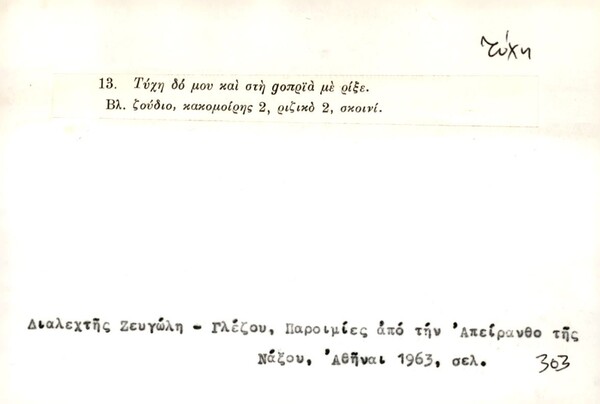 Τύχη
13. Τύχη δό μου καὶ στὴ gοπρϊὰ μὲ ρίξε.
Βλ. ζούδιο, κακομοίρης 2, ριζικὸ 2, σκοινί.
Διαλεχτῆς Ζευγώλη - Γλέζου, Παροιμίες ἀπό τήν Ἀπείρανθο τῆς
Νάξου, Ἀθῆναι 1963, σελ. 303